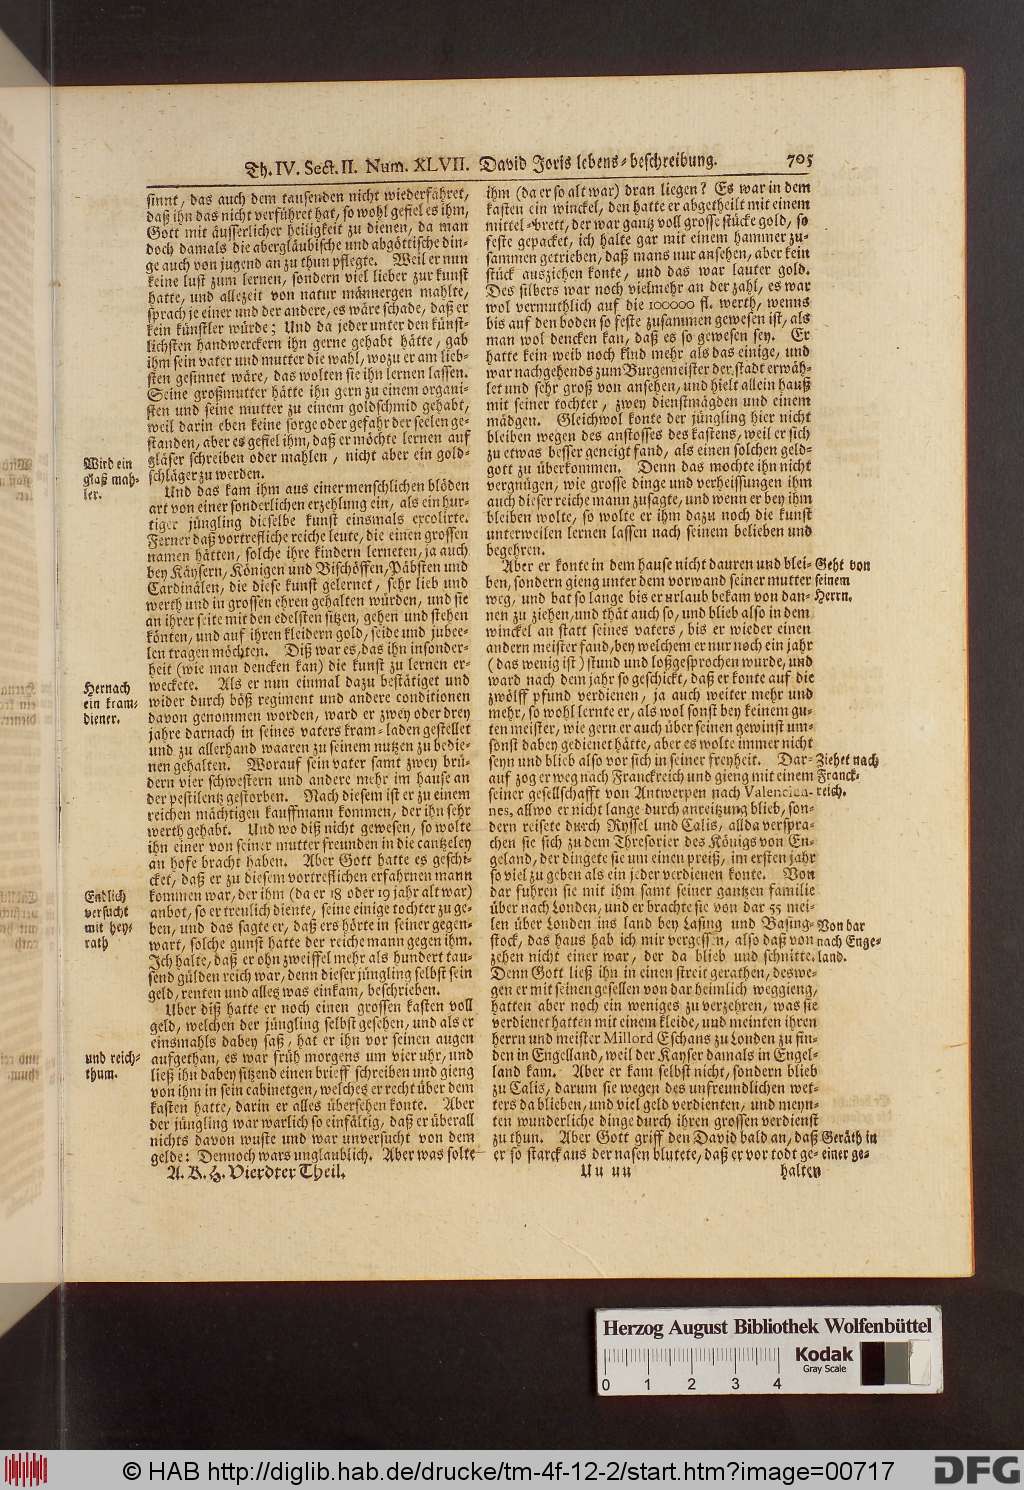 Th. IV. Sect. II. Num. XLVII. David Joris lebens-beschreibung. 705
sinnt, das auch dem tausenden nicht wiederfähret,
daß ihn das nicht verführet hat, so wohl gefiel es ihm,
Gott mit äusserlicher heiligkeit zu dienen, da man
doch damals die abergläubische und abgöttische din-
ge auch von jugend an zu thun pflegte. Weil er nun
keine lust zum lernen, sondern viel lieber zur kunst
hatte, und allezeit von natur männergen mahlte,
sprach je einer und der andere, es wäre schade, daß er
kein künstler würde; Und da jeder unter den künst-
lichsten handwerckern ihn gerne gehabt hätte, gab
ihm sein vater und mutter die wahl, wozu er am lieb-
sten gesinnet wäre, das wolten sie ihn lernen lassen.
Seine großmutter hätte ihn gern zu einem organi-
sten und seine mutter zu einem goldschmid gehabt,
weil darin eben keine sorge oder gefahr der seelen ge-
standen, aber es gefiel ihm, daß er möchte lernen auf
Wird ein gläser schreiben oder mahlen, nicht aber ein gold-
glaß mah- schläger zu werden.
ler. Und das kam ihm aus einer menschlichen blöden
art von einer sonderlichen erzehlung ein, als ein hur-
tiger jüngling dieselbe kunst einsmals excolirte.
Ferner daß vortrefliche reiche leute, die einen grossen
namen hätten, solche ihre kindern lerneten, ja auch
bey Käysern, Königen und Bischöffen, Päbsten und
Cardinälen, die diese kunst gelernet, sehr lieb und
werth und in grossen ehren gehalten würden, und sie
an ihrer seite mit den edelsten sitzen, gehen und stehen
könten, und auf ihren kleidern gold, seide und jubee-
len tragen möchten. Diß war es, das ihn insonder-
heit (wie man dencken kan) die kunst zu lernen er-
Hernach weckete. Als er nun einmal dazu bestätiget und
ein kram- wider durch böß regiment und andere conditionen
diener. davon genommen worden, ward er zwey oder drey
jahre darnach in seines vaters kram-laden gestellet
und zu allerhand waaren zu seinem nutzen zu bedie-
nen gehalten. Worauf sein vater samt zwey brü-
dern vier schwestern und andere mehr im hause an
der pestilentz gestorben. Nach diesem ist er zu einem
reichen mächtigen kauffmann kommen, der ihn sehr
werth gehabt. Und wo diß nicht gewesen, so wolte
ihn einer von seiner mutter freunden in die cantzeley
an hofe bracht haben. Aber Gott hatte es geschi-
cket, daß er zu diesem vortreflichen erfahrnen mann
Endlich kommen war, der ihm (da er 18 oder 19 jahr alt war)
versucht anbot, so er treulich diente, seine einige tochter zu ge-
mit hey- ben, und das sagte er, daß ers hörte in seiner gegen-
rath wart, solche gunst hatte der reiche mann gegen ihm.
Ich halte, daß er ohn zweiffel mehr als hundert tau-
send gülden reich war, denn dieser jüngling selbst sein
geld, renten und alles was einkam, beschrieben.
Uber diß hatte er noch einen grossen kasten voll
geld, welchen der jüngling selbst gesehen, und als er
einsmahls dabey saß, hat er ihn vor seinen augen
und reich- aufgethan, es war früh morgens um vier uhr, und
thum. ließ ihn dabey sitzend einen brieff schreiben und gieng
von ihm in sein cabinetgen, welches er recht über dem
kasten hatte, darin er alles übersehen konte. Aber
der jüngling war warlich so einfältig, daß er überall
nichts davon wuste und war unversucht von dem
gelde: Dennoch wars unglaublich. Aber was solte
A. K. H. Vierdter Theil.
ihm (da er so alt war) dran liegen? Es war in dem
kasten ein winckel, den hatte er abgetheilt mit einem
mittel-brett, der war gantz voll grosse stücke gold, so
feste gepacket, ich halte gar mit einem hammer zu-
sammen getrieben, daß mans nur ansehen, aber kein
stück ausziehen konte, und das war lauter gold.
Des silbers war noch vielmehr an der zahl, es war
wol vermuthlich auf die 100000 fl. werth, wenns
bis auf den boden so feste zusammen gewesen ist, als
man wol dencken kan, daß es so gewesen sey. Er
hatte kein weib noch kind mehr als das einige, und
war nachgehends zum Burgemeister der stadt erwäh-
let und sehr groß von ansehen, und hielt allein hauß
mit seiner tochter, zwey dienstmägden und einem
mädgen. Gleichwol konte der jüngling hier nicht
bleiben wegen des anstosses des kastens, weil er sich
zu etwas besser geneigt fand, als einen solchen geld-
gott zu überkommen. Denn das mochte ihn nicht
vergnügen, wie grosse dinge und verheissungen ihm
auch dieser reiche mann zusagte, und wenn er bey ihm
bleiben wolte, so wolte er ihm dazu noch die kunst
unterweilen lernen lassen nach seinem belieben und
begehren.
Aber er konte in dem hause nicht dauren und blei- Geht von
ben, sondern gieng unter dem vorwand seiner mutter seinem
weg, und bat so lange bis er urlaub bekam von dan- Herrn.
nen zu ziehen, und thät auch so, und blieb also in dem
winckel an statt seines vaters, bis er wieder einen
andern meister fand, bey welchem er nur noch ein jahr
(das wenig ist) stund und loßgesprochen wurde, und
ward nach dem jahr so geschickt, daß er konte auf die
zwölff pfund verdienen, ja auch weiter mehr und
mehr, so wohl lernte er, als wol sonst bey keinem gu-
ten meister, wie gern er auch über seinen gewinst um-
sonst dabey gedienet hätte, aber es wolte immer nicht
seyn und blieb also vor sich in seiner freyheit. Dar- Ziehet nach
auf zog er weg nach Franckreich und gieng mit einem Franck-
seiner gesellschafft von Antwerpen nach Valencien- reich.
nes, allwo er nicht lange durch anreitzung blieb, son-
dern reisete durch Ryssel und Calis, allda verspra-
chen sie sich zu dem Thresorier des Königs von En-
geland, der dingete sie um einen preiß, im ersten jahr
so viel zu geben als ein jeder verdienen konte. Von
dar fuhren sie mit ihm samt seiner gantzen familie
über nach Londen, und er brachte sie von dar 55 mei-
len über Londen ins land bey Lasing und Basing- Von dar
stock, das haus hab ich mir vergessen, also daß von nach Enge-
zehen nicht einer war, der da blieb und schnitte. land.
Denn Gott ließ ihn in einen streit gerathen, deswe-
gen er mit seinen gesellen von dar heimlich weggieng,
hatten aber noch ein weniges zu verzehren, was sie
verdienet hatten mit einem kleide, und meinten ihren
herrn und meister Millord Eschans zu Londen zu fin-
den in Engelland, weil der Kayser damals in Engel-
land kam. Aber er kam selbst nicht, sondern blieb
zu Calis, darum sie wegen des unfreundlichen wet-
ters da blieben, und viel geld verdienten, und meyn-
ten wunderliche dinge durch ihren grossen verdienst
zu thun. Aber Gott griff den David bald an, daß Geräth in
er so starck aus der nasen blutete, daß er vor todt ge- einer ge-
Uu uu halten
Herzog August Bibliothek Wolfenbüttel
0 1 2 3 4
Kodak
Gray Scale
© HAB http://diglib.hab.de/drucke/tm-4f-12-2/start.htm?image=00717
DFG